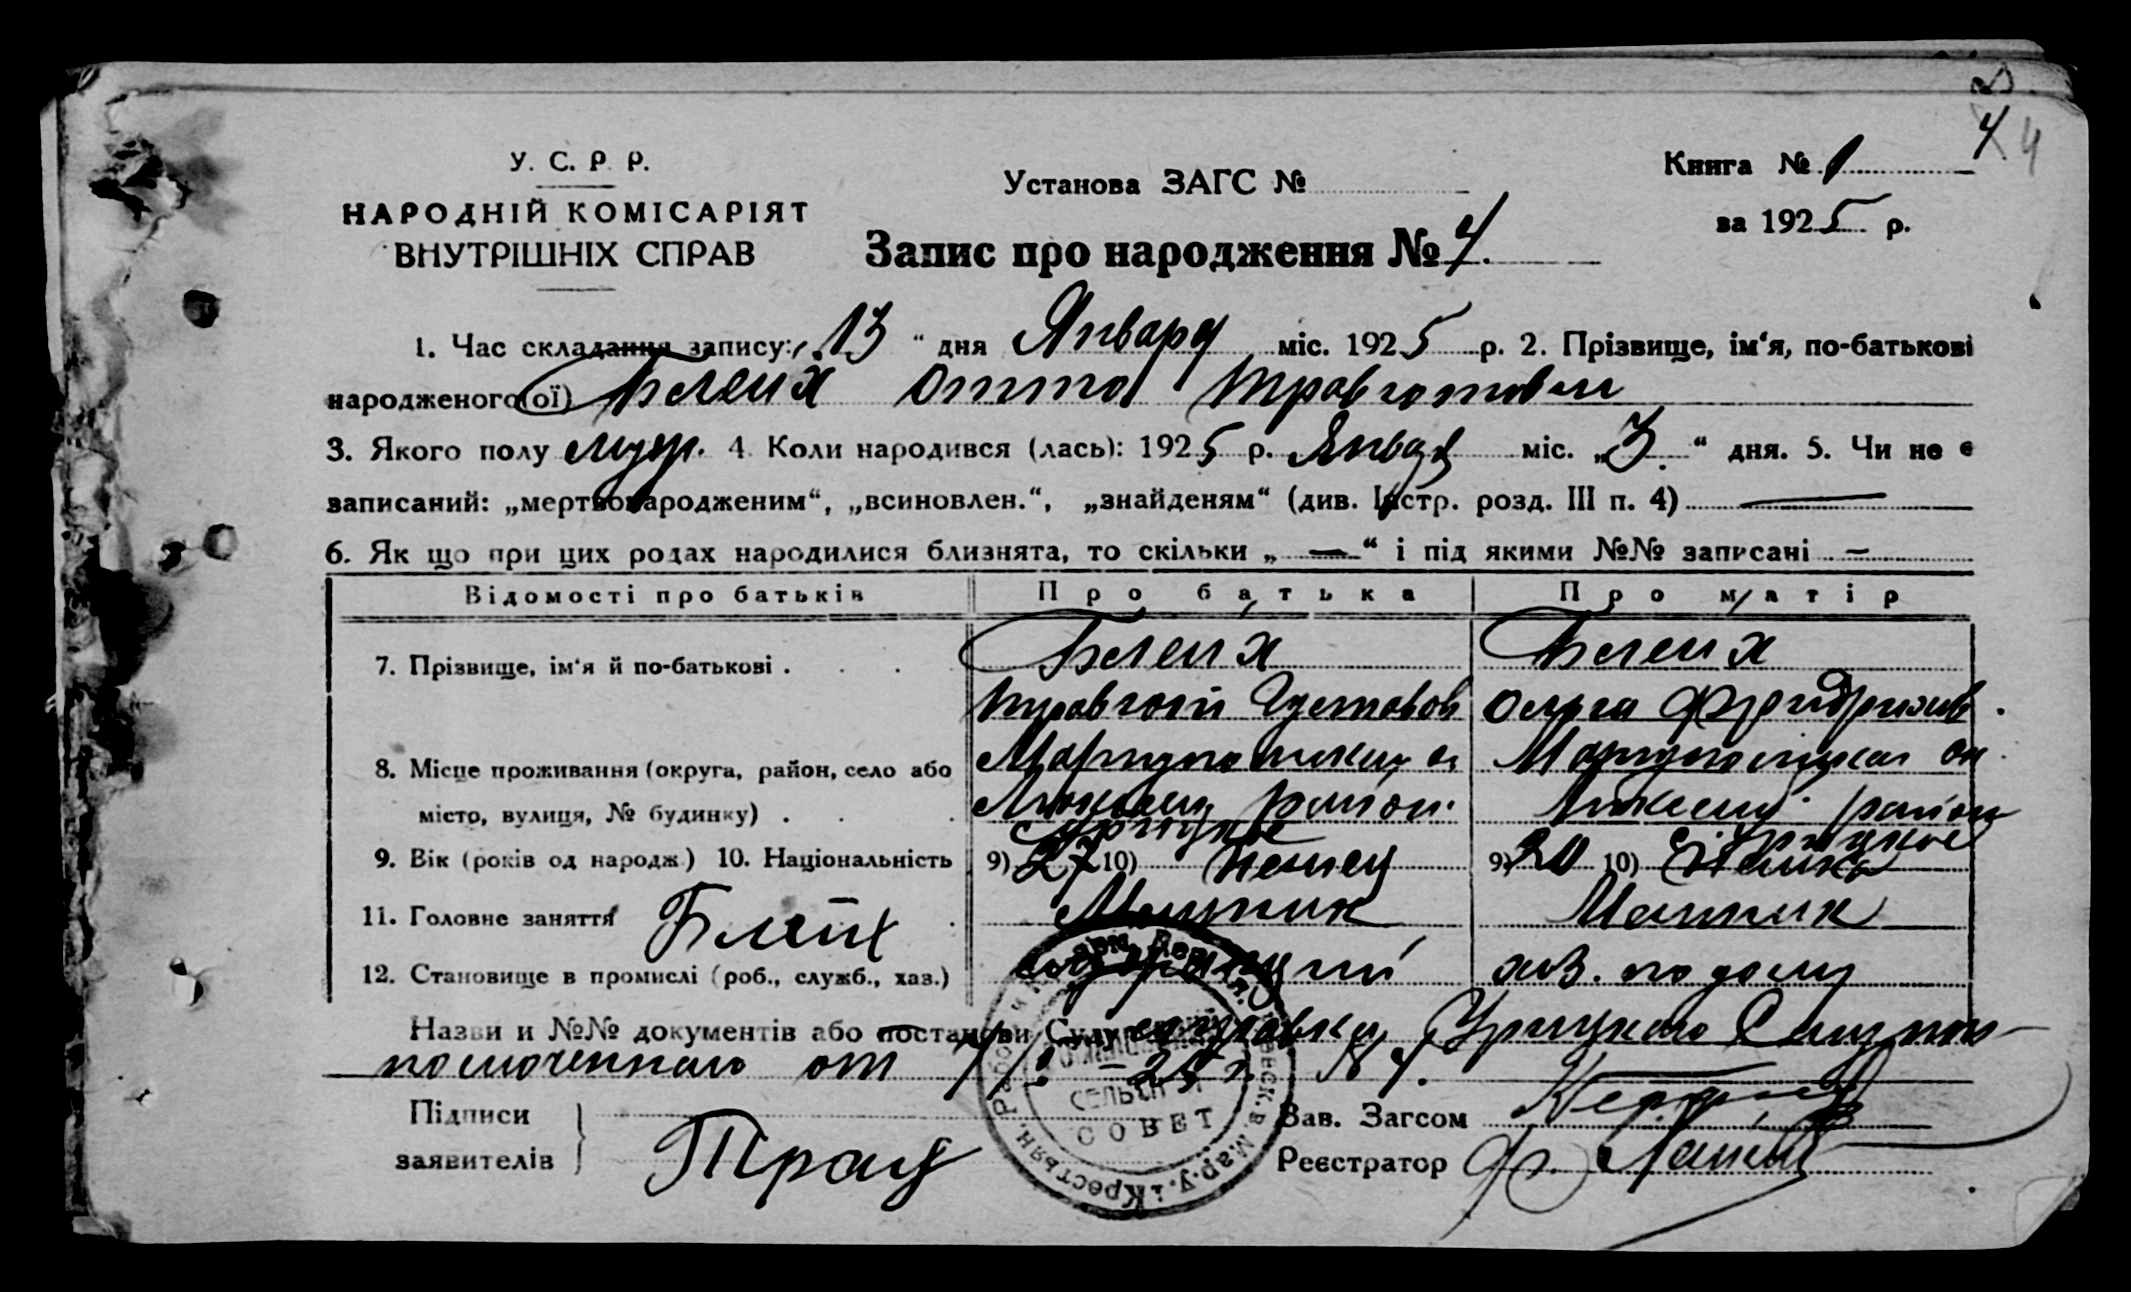 4 4
У. С. Р. Р.
НАРОДНІЙ КОМІСАРІЯТ
ВНУТРІШНІХ СПРАВ
Установа ЗАГС №
Книга № 1
за 1925 р.
Запис про народження № 4.
1. Час складання запису: „13“ дня Января міс. 1925 р. 2. Прізвище, ім‘я, по-батькові
народженого(ої) Блейх Отто Травготович
3. Якого полу муж. 4. Коли народився (лась): 1925 р. Январ міс. „3“ дня. 5. Чи не є
записаний: „мертвонародженим“, „всиновлен.“, „знайденям“ (див. Інстр. розд. III п. 4) —
6. Як що при цих родах народилися близнята, то скільки „ — “ і під якими №№ записані —
Відомості про батьків Про батька Про матір
7. Прізвище, ім‘я й по-батькові . . . Блейх Блейх
Травготт Густавов Ольга Фридрихов.
8. Місце проживання (округа, район, село або Мариупольский ок Мариупольская ок.
місто, вулиця, № будинку) . . . район. район
9. Вік (років од народж.) 10. Національність 9) 27 10) Немец 9) 20 10) Немка
11. Головне заняття Блейх
12. Становище в промислі (роб., служб., хаз.) хоз. по дому
Назви и №№ документів або постанови Суду справка Урицкого Сельупол-
номоченного от 25 г. № 4.
СЕЛЬСКИЙ
СОВЕТ
Підписи
заявителів
Трауг
Зав. Загсом
Реєстратор